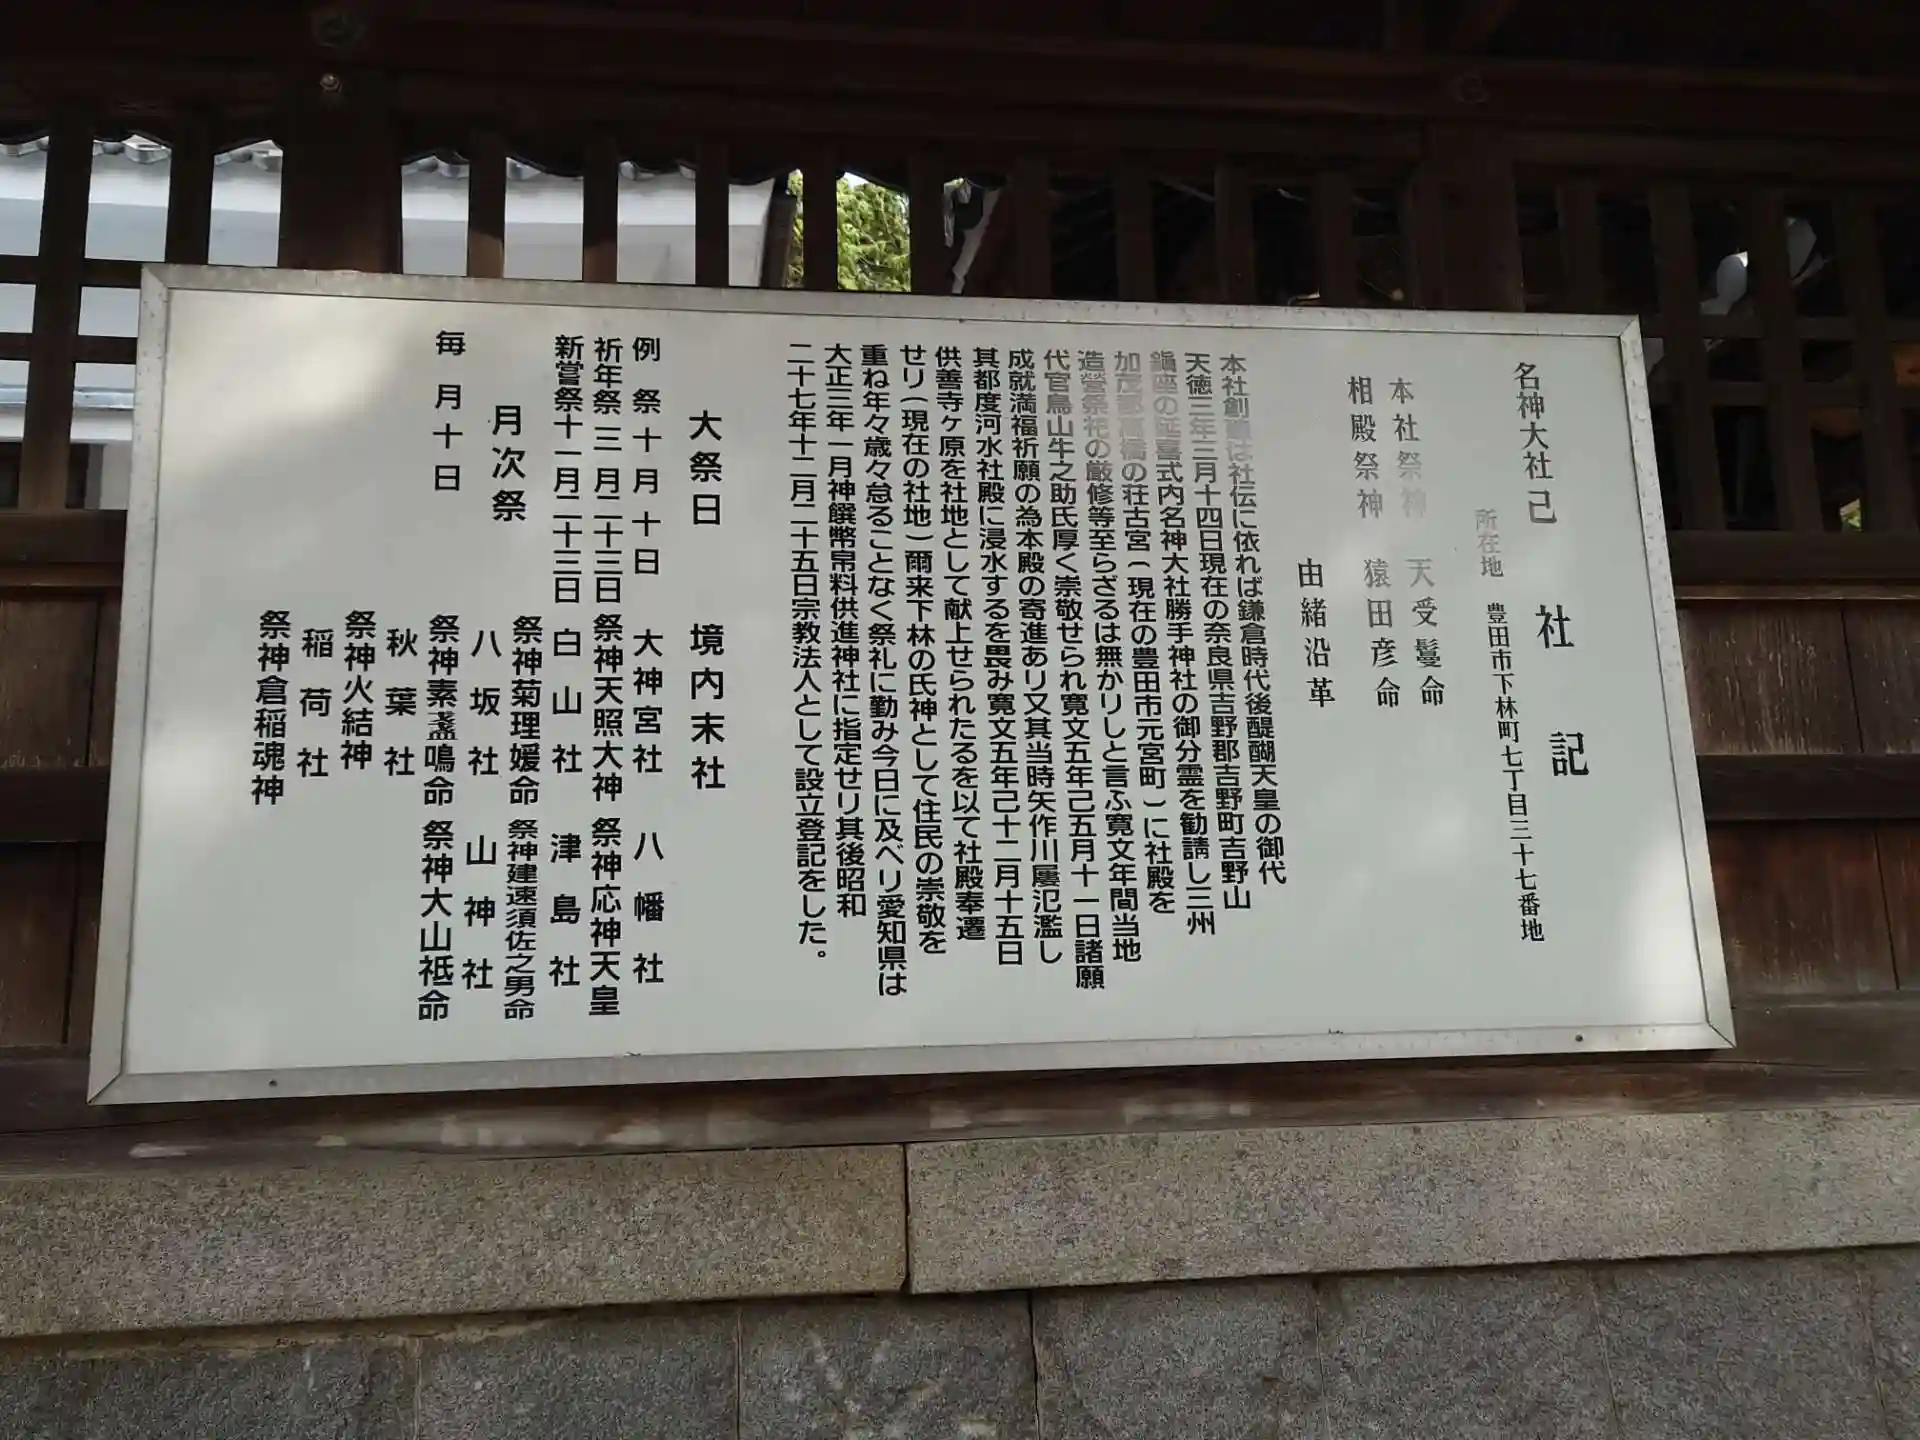 名神大社己
社記
所在地 豊田市下林町七丁目三十七番地
本社祭神 天受鬘命
相殿祭神 猿田彦命
由緒沿革
本社創 は社伝に依れば鎌倉時代後醍醐天皇の御代
天徳三年三月十四日現在の奈良県吉野郡吉野町吉野山
鎮座の延喜式内名神大社勝手神社の御分霊を勧請し三州
加茂郡高橋の荘古宮(現在の豊田市元宮町)に社殿を
造営祭祀の厳修等至らざるは無かりしと言ふ寛文年間当地
代官鳥山牛之助氏厚く崇敬せられ寛文五年己五月十一日諸願
成就満福祈願の為本殿の寄進あり又其当時矢作川屡氾濫し
其都度河水社殿に浸水するを畏み寛文五年己十二月十五日
供善寺ヶ原を社地として献上せられたるを以て社殿奉遷
せり(現在の社地)爾来下林の氏神として住民の崇敬を
重ね年々歳々怠ることなく祭礼に勤み今日に及べり愛知県は
大正三年一月神饌幣帛料供進神社に指定せり其後昭和
二十七年十二月二十五日宗教法人として設立登記をした。
大祭日
例祭十月十日
祈年祭三月二十三日
新嘗祭十一月二十三日
月次祭
毎月十日
境内末社
大神宮社 八幡社
祭神天照大神 祭神応神天皇
白山社 津島社
祭神菊理媛命 祭神建速須佐之男命
八坂社 山神社
祭神素盞鳴命 祭神大山祇命
秋葉社
祭神火結神
稲荷社
祭神倉稲魂神